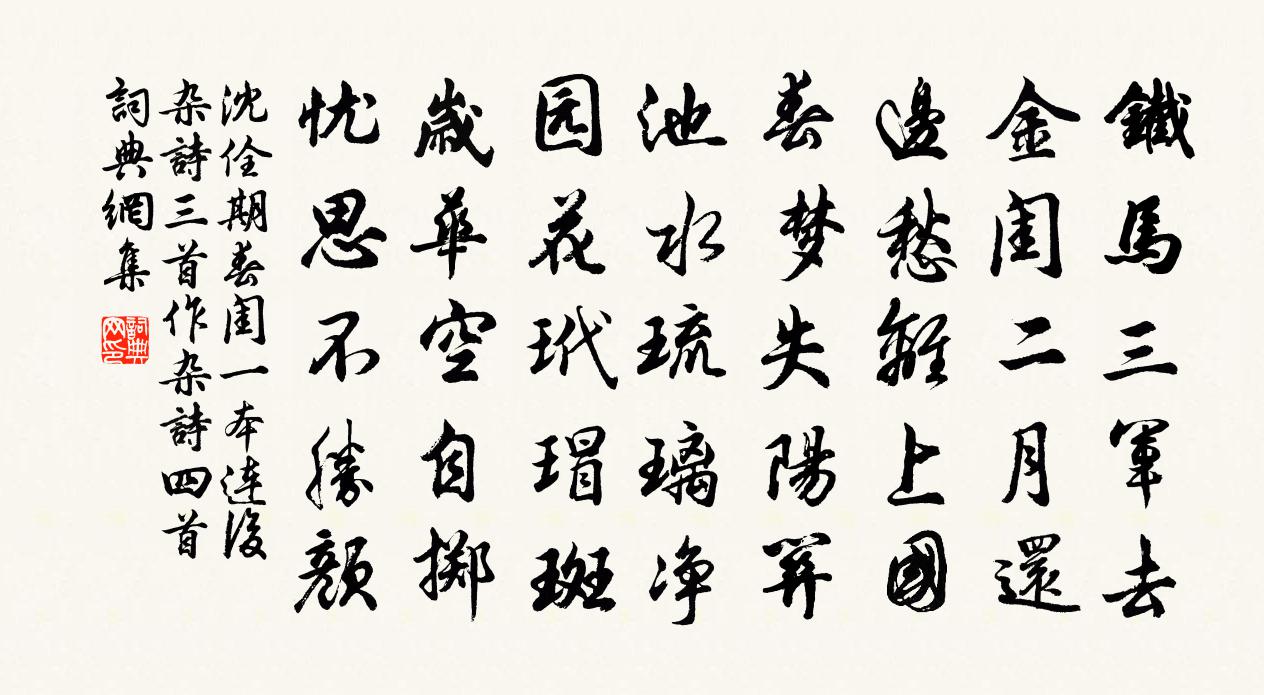 鐵馬三軍去
金閨二月還
邊愁離上國
春梦失陽關
池水琉璃净
园花玳瑁斑
歲華空自掷
忧思不勝顏
沈佺期春閨一本連後
杂詩三首作杂詩四首
詞典網集
詞典网印